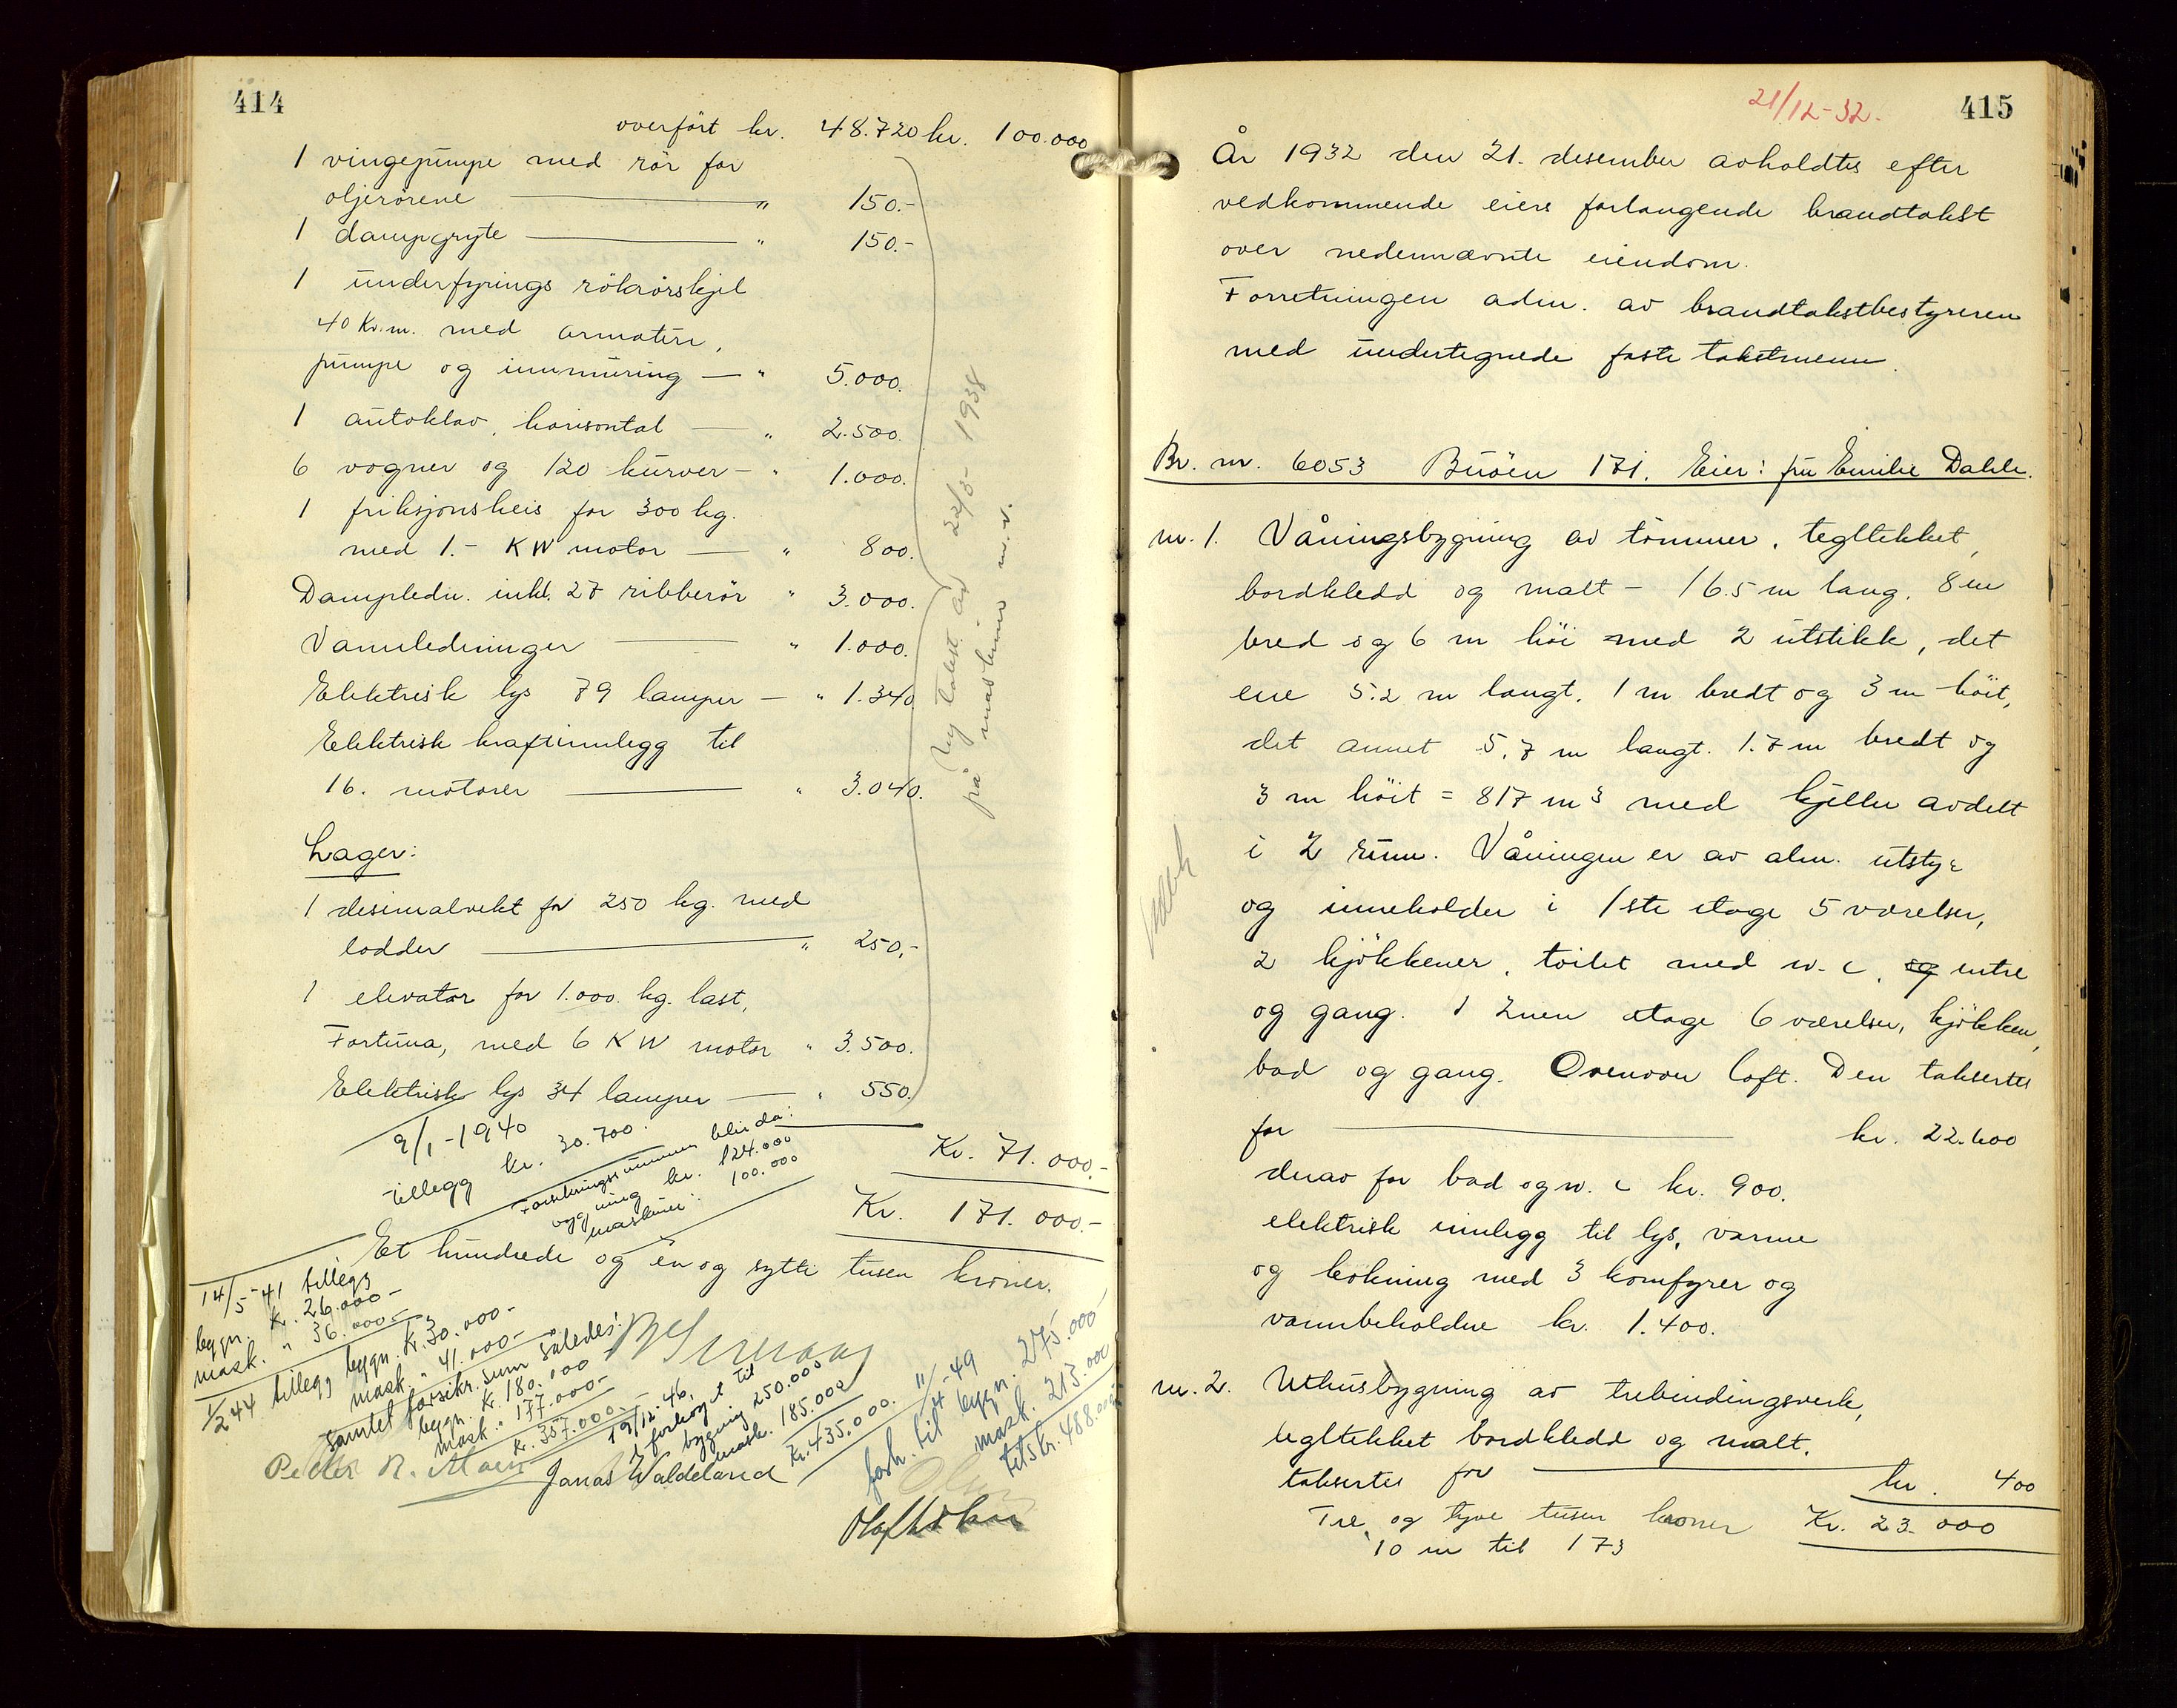 414
overfört kr. 48.720 kr. 100.000
1 vingepumpe med rör for
oljerörene " 150.-
1 dampgryte " 150.-
1 underfyrings rökrörskjel
40 Kv.m. med armatur,
pumpe og innmuring — " 5.000.
1 autoklav, horisontal — " 2.500.
6 vogner og 120 kurver — " 1.000.
1 friksjonsheis for 300 kg.
med 1.- KW motor — " 800.
Dampledn. inkl. 27 ribberör " 3.000.
Vannledninger " 1.000.
Elektrisk lys 79 lamper — " 1.340.
Elektrisk kraftinnlegg til
16. motorer " 3.040.
Ny takst av 22/3-1938
på maskiner m.v.
Lager:
1 desimalvekt for 250 kg. med
lodder " 250,-
1 elevator for 1.000. kg. last,
Fortuna, med 6 KW motor " 3.500.
Elektrisk lys 34 lamper — " 550.
Kr. 71.000.-
Kr. 171.000.-
9/1-1940
tillegg kr. 30.700.
Forsikringssummen blir da:
bygning kr. 124.000
maskiner: 100.000
Et hundrede og en og sytti tusen kroner.
14/5-41 tillegg
bygn. kr. 26.000-
mask. " 36.000-
1/2 44 tillegg bygn. kr. 30.000-
mask. " 41.000-
Samlet forsikr.sum således:
bygn. kr. 180.000
mask. " 177.000-
kr. 357.000.-
19/12-46.
forhöyet til
bygning 250.000
mask. 185.000
Kr. 435.000.
11/4-49
forh. til bygn. 275.000
mask. 213.000
tils kr. 488.000
Jonas Waldeland
415
21/12-32.
År 1932 den 21. desember avholdtes efter
vedkommende eiers forlangende brandtakst
over nedennævnte eiendom.
Forretningen adm. av brandtakstbestyreren
med undertegnede faste takstmenn.
Br. nr. 6053 Buöen 171. Eier: fru Emilie Dahle.
nr. 1. Våningsbygning av tömmer, tegltekket,
bordkledd og malt - 16.5 m lang, 8 m
bred og 6 m höi med 2 utstikk, det
ene 5.2 m langt, 1 m bredt og 3 m höit,
det annet 5.7 m langt. 1.7 m bredt og
3 m höit = 817 m3 med kjeller avdelt
i 2 rum. Våningen er av alm. utstyr
og inneholder i 1ste etage 5 værelser,
2 kjökkener, toilet med w. c, og entre
og gang. I 2nen etage 6 værelser, kjökken,
bad og gang. Ovenover loft. Den takseres
for kr. 22.600
derav for bad og w. c kr. 900.
elektrisk innlegg til lys, varme
og kokning med 3 komfyrer og
vannbeholdere kr. 1.400.
nr. 2. Uthusbygning av trebindingsverk,
tegltekket bordkledd og malt.
takseres for kr. 400
Tre og tyve tusen kroner Kr. 23.000
10 m til 173